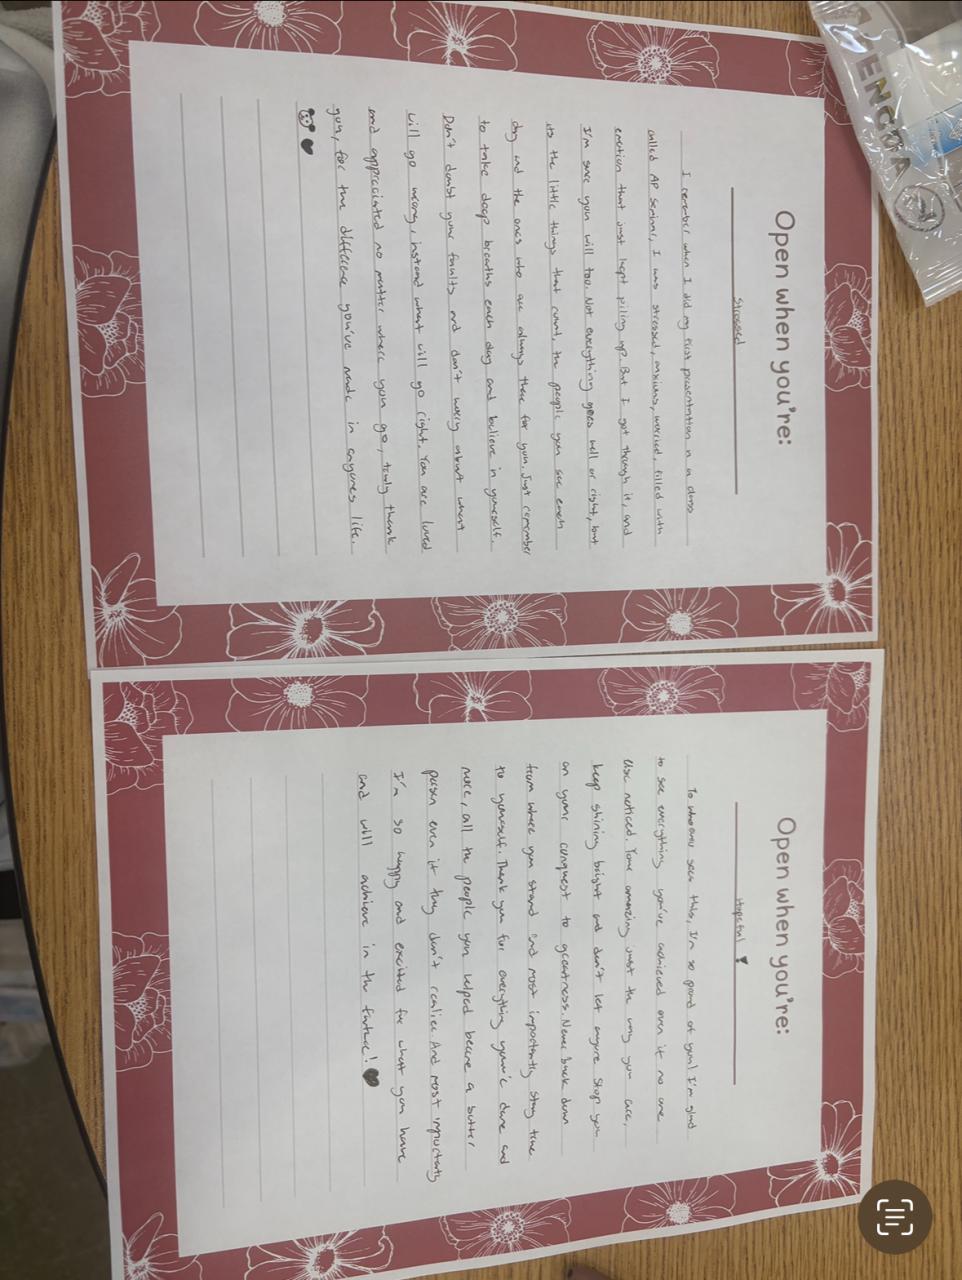 Open when you're:
Stressed
I remember when I did my first presentation in a class
called AP Seminar, I was stressed, anxious, worried, filled with
emotion that just kept piling up. But I got through it, and
I'm sure you will too. Not everything goes well or right, but
its the little things that count, the people you see each
day and the ones who are always there for you. Just remember
to take deep breaths each day and believe in yourself.
Don't doubt your faults and don't worry about what
will go wrong, instead what will go right. You are loved
and appreciated no matter where you go, truly thank
you, for the difference you've made in anyones life.
Open when you're:
Hopeful
To whoever sees this, I'm so proud of you! I'm glad
to see everything you've achieved even if no one
else noticed. Your amazing just the way you are,
keep shining bright and don't let anyone stop you
on your conquest to greatness. Never back down
from where you stand and most importantly stay true
to yourself. Thank you for everything you've done and
more, all the people you helped become a better
person even if they don't realize. And most importantly
I'm so happy and excited for what you have
and will achieve in the future!
MENCOA